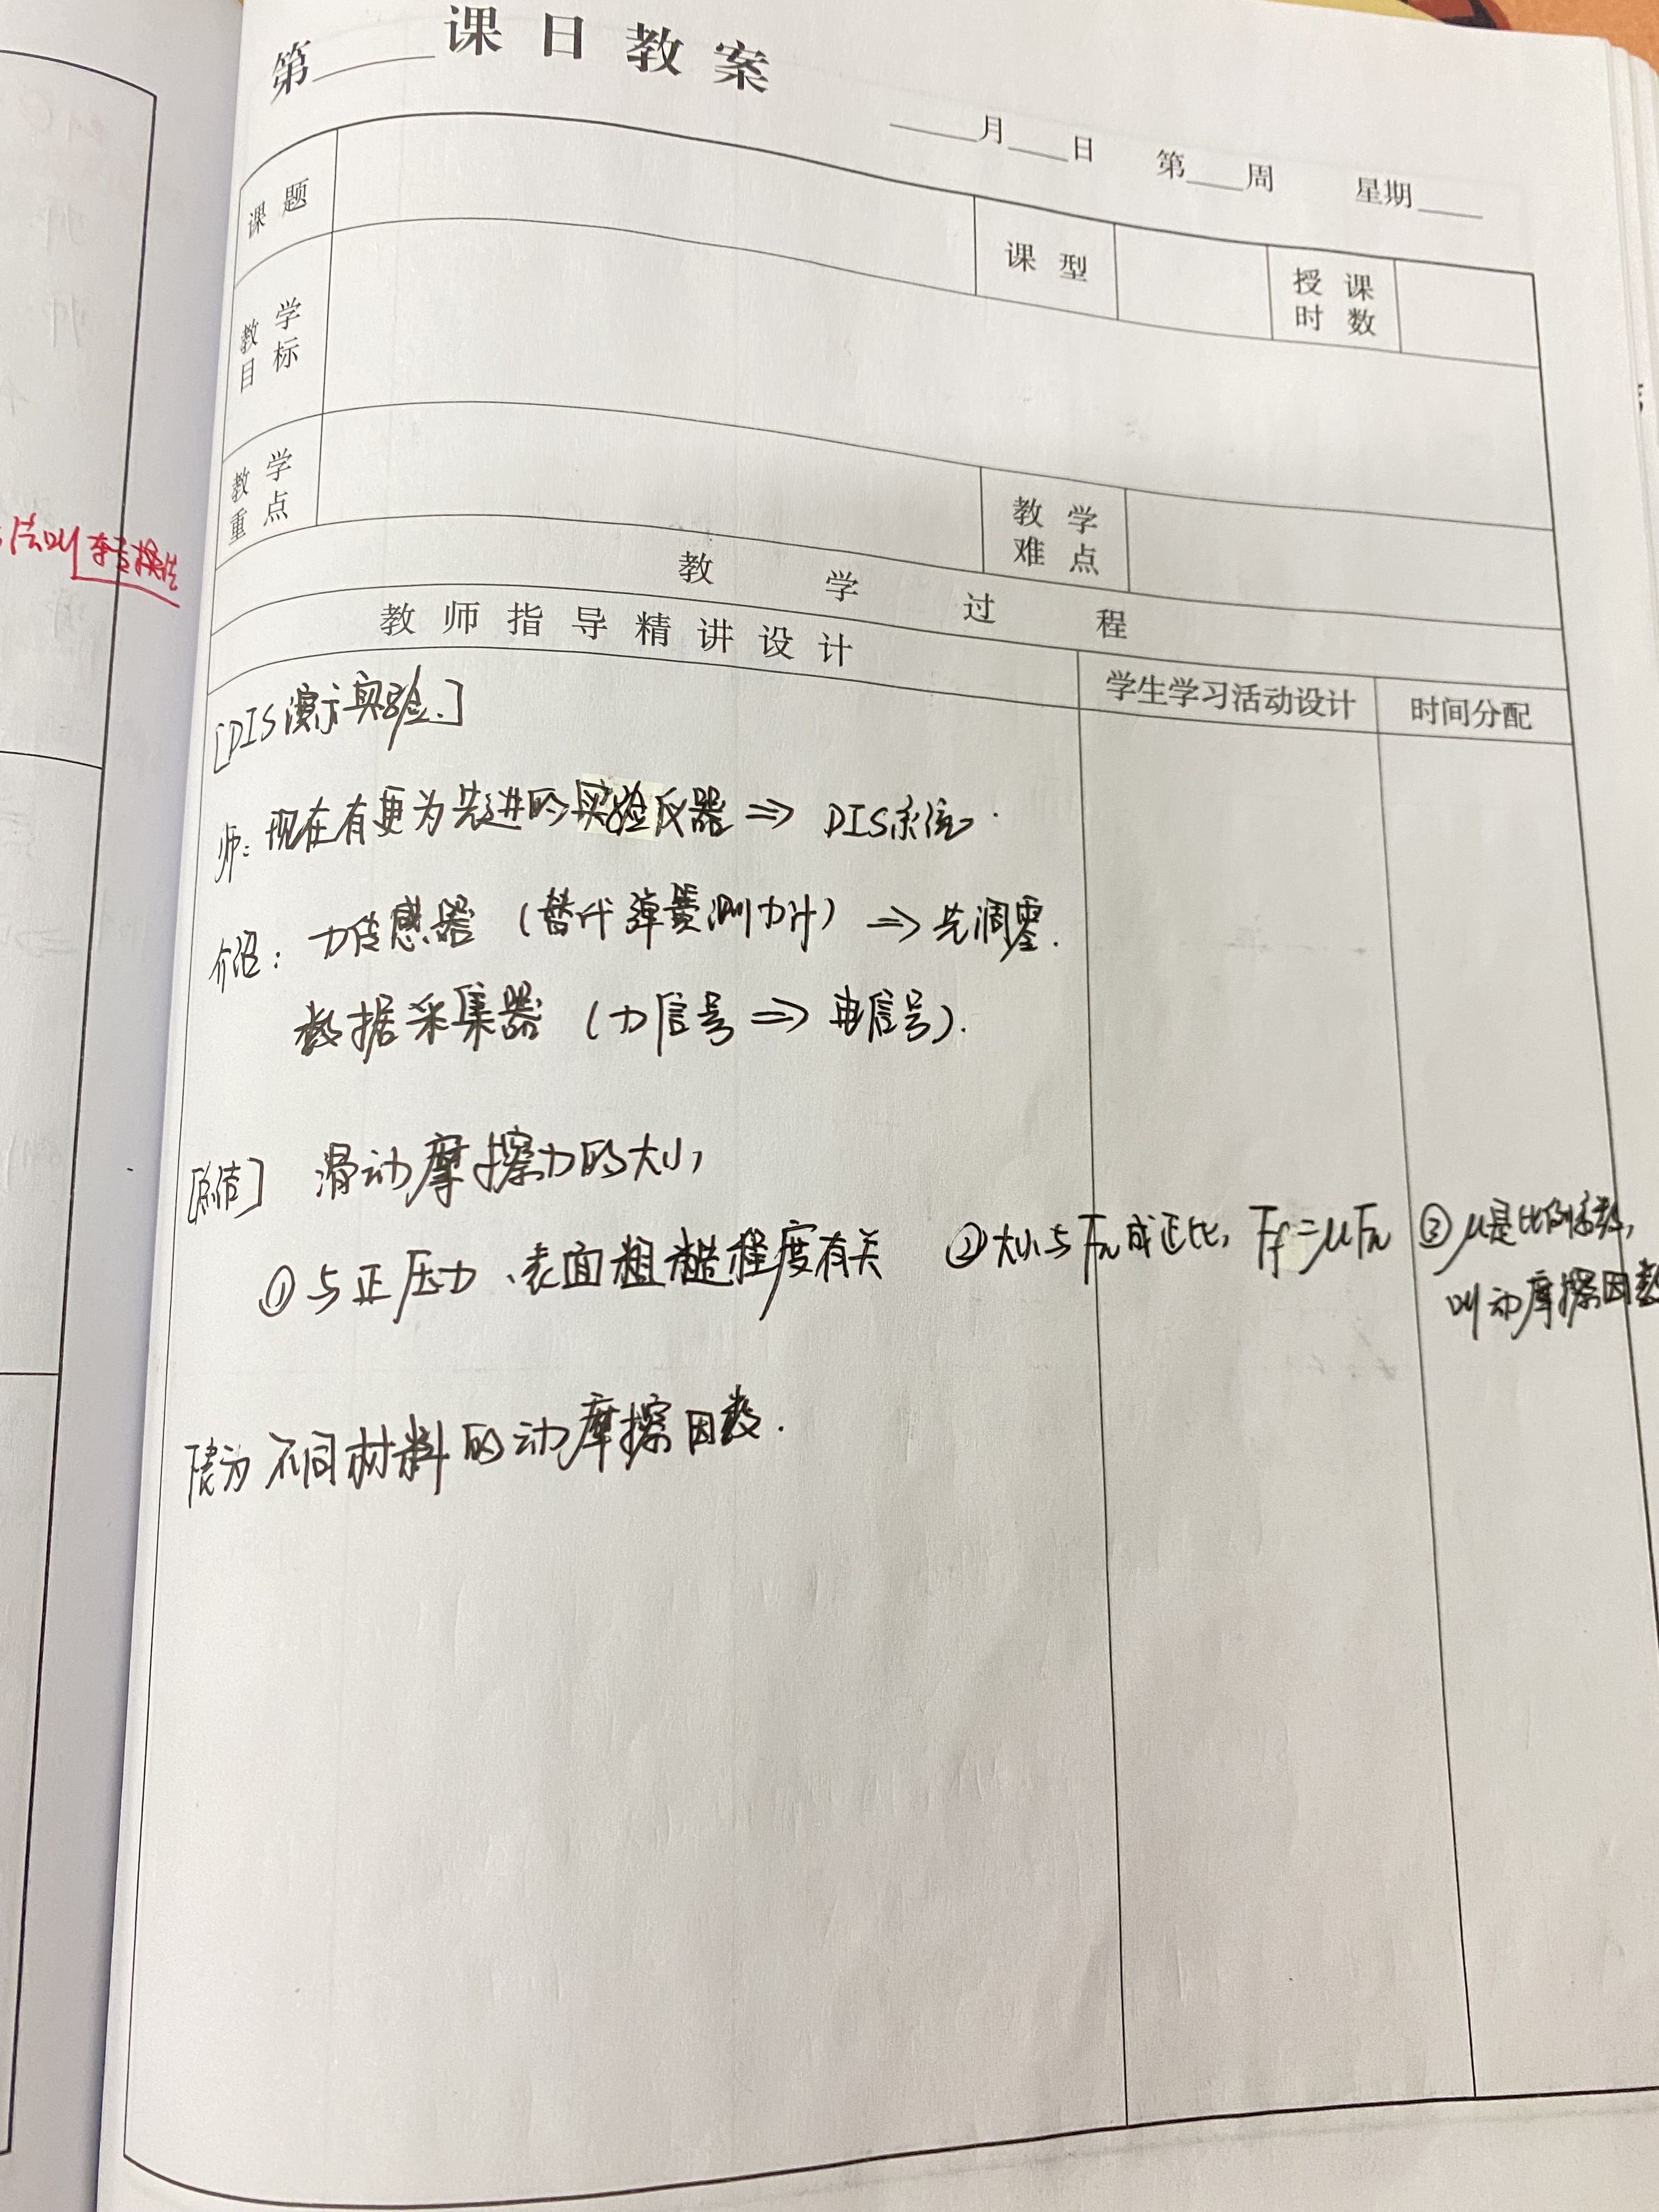 第____课日教案
____月____日 第____周 星期____
课题
课型
授课时数
教学目标
教学重点
教学难点
教学过程
教师指导精讲设计
学生学习活动设计
时间分配
[DIS演示实验.]
师: 现在有更为先进的实验仪器 ⇒ DIS系统.
介绍: 力传感器 (替代弹簧测力计) ⇒ 先调零.
数据采集器 (力信号 ⇒ 电信号).
[总结] 滑动摩擦力的大小,
① 与正压力、表面粗糙程度有关 ②大小与Fₙ成正比, F_f=μFₙ ③ μ是比例系数,
叫动摩擦因数
为不同材料的动摩擦因数.
法叫